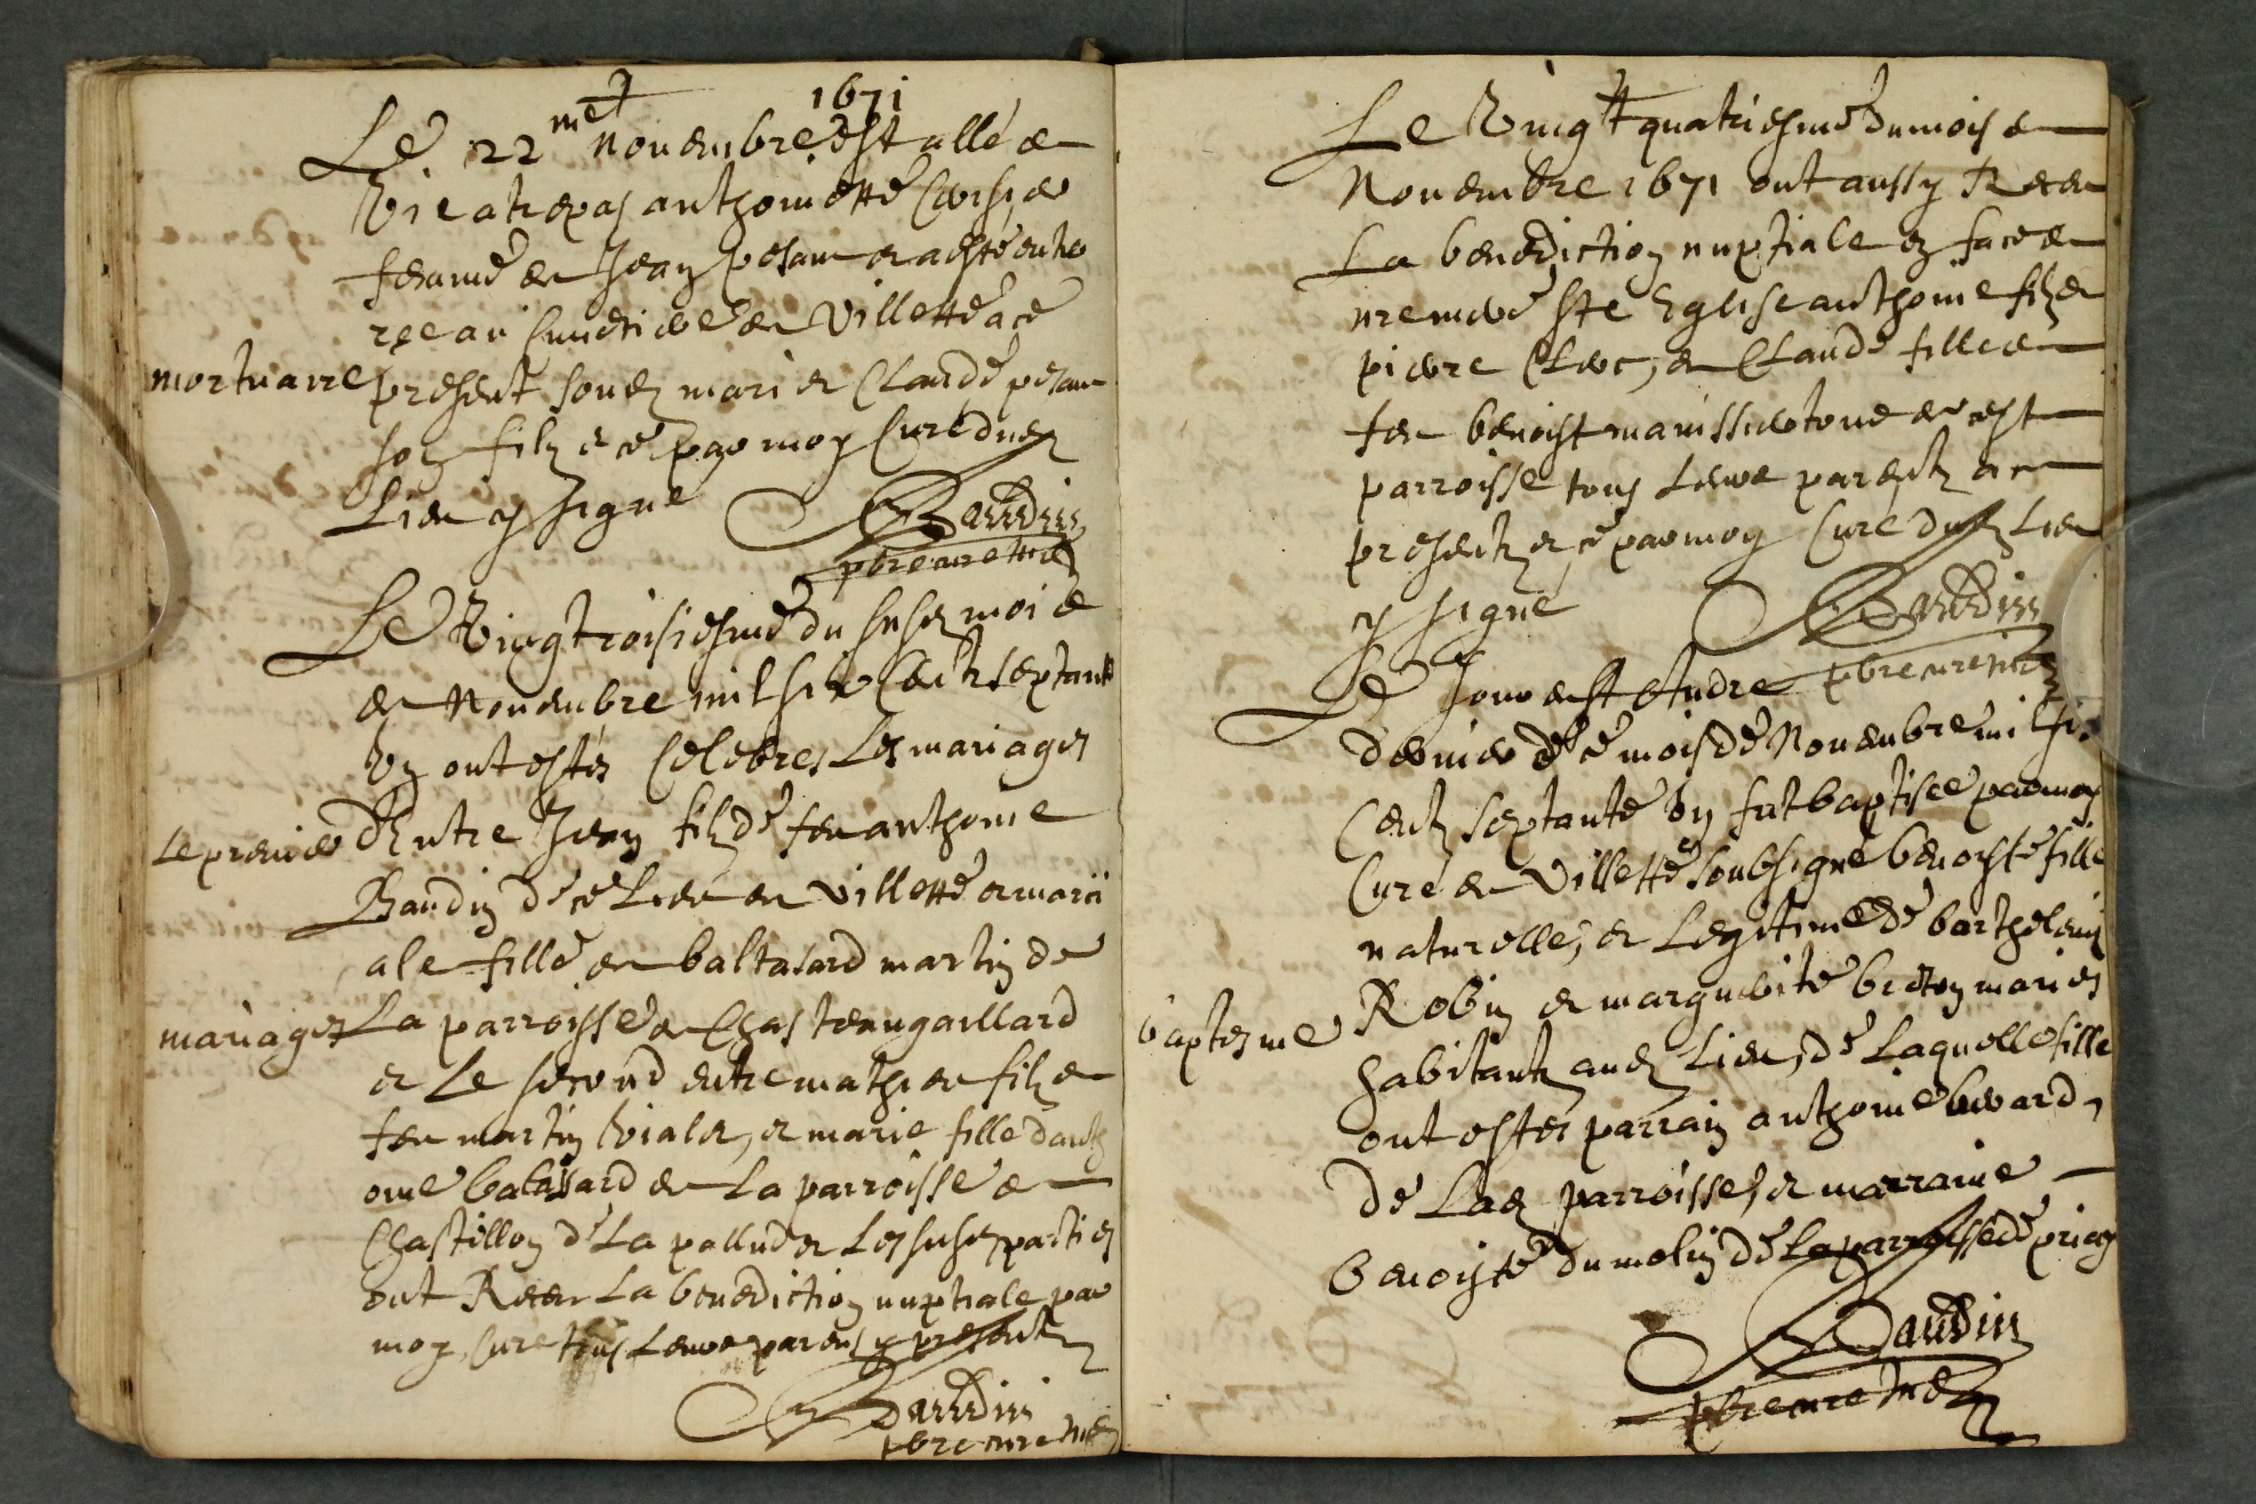 1671
Le 22me novembre est allé de
vie a trepas anthoinette
femme de Jean pesam et a esté
au cimetiere de Villette a ce
mortuaire present soud mari et Claude pesam
son filz et ce par moy Curé dud
Lieu y signé Baudin
pbre cure
Le vingtroisiesme du susd moi de
de Novembre mil six Centz septante
un ont estés Celebres Les mariages
Le premier Entre Jean filz de feu anthoine
Baudin de ce Lieu de Villette et
fille de baltasard martin de
mariages La parroisse de Chasteaugaillard
et Le second entre mathieu filz de
feu martin vialet, et marie fille danth
oine balassard de La parroisse de
Chastillon de La pallud et Les susd parties
ont Receu La benediction nuptiale par
moy Cure tous Leurs parens y presentz
Baudin
pbre cure
Le Vingt quatriesme du mois de
Novembre 1671 ont aussy Receu
La benediction nuptiale en face de
nre mere ste Eglise anthoine filz de
pierre Clerc, et Claude fille de
feu benoist de cest
parroisse tous Leurs parentz a ce
presentz et ce par moy Curé dud Lieu
y signé Baudin
pbre cure
Le Jour de st Andre
dernier de ce mois de Novembre mil six
Centz septante un fut baptisée par moy
Curé de Villette soubsigné benoiste fille
naturelle, et Legitime de barthelemy
Robin et marguerite breton maries
baptesme habitantz aud Lieu, de Laquelle fille
ont estés parrain anthoine
de Lad parroisse, et marraine
benoiste dumolin de La parroisse de priay
Baudin
pbre cure